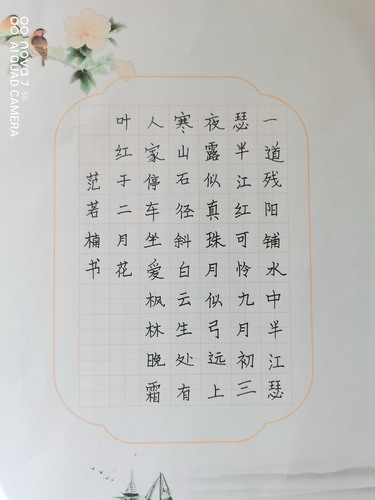 一道残阳铺水中半江瑟
瑟半江红可怜九月初三
夜露似真珠月似弓远上
寒山石径斜白云生处有
人家停车坐爱枫林晚霜
叶红于二月花
范若楠书
nova 7 5G
AI QUAD CAMERA